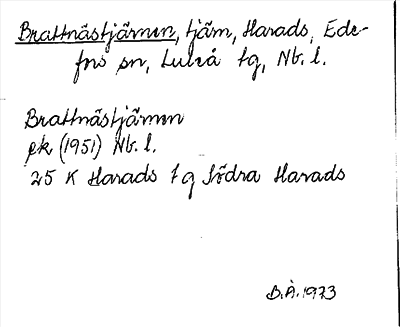 Brattnästjärnen, tjärn, Harads, Ede-
fors sn, Luleå tg, Nb. l.
Brattnästjärnen
ek (1951) Nb. l.
25 K Harads t g Södra Harads
B.Å. 1973